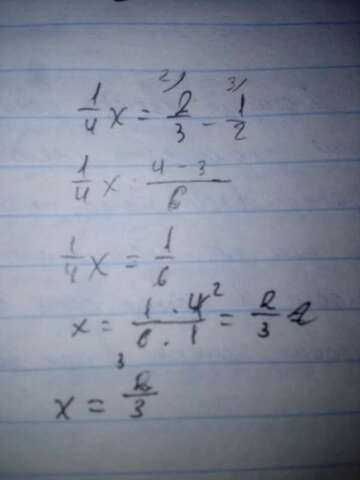 1/4 x = 2)2/3 - 3)1/2
1/4 x · 4 - 3/6
1/4 x = 1/6
x = 1 · 4²/6₃ · 1 = 2/3
x = 2/3